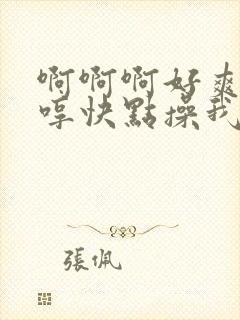 啊啊啊好爽
哼快點操我
張佩